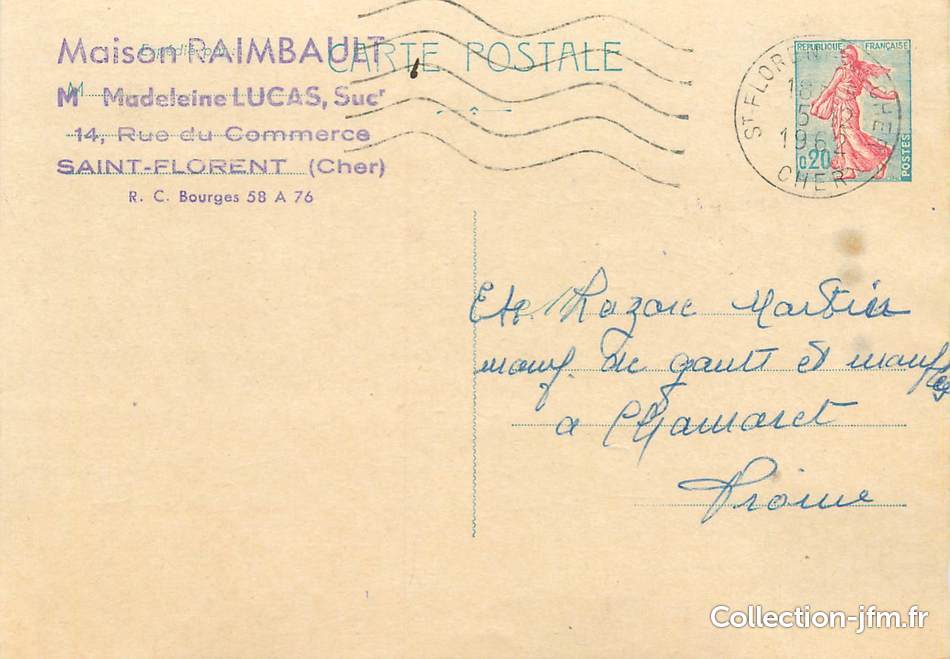 Maison RAIMBAULT
Expédié par :
CARTE POSTALE
M Madeleine LUCAS, Sucr
14, Rue du Commerce
SAINT-FLORENT (Cher)
R. C. Bourges 58 A 76
REPUBLIQUE FRANÇAISE
0,20
POSTES
ST FLORENT CHER
18
5 12
1962
CHER
Ets Lazare Martin
manuf. de gants et moufles
a Chamaret
Drôme
Collection-jfm.fr